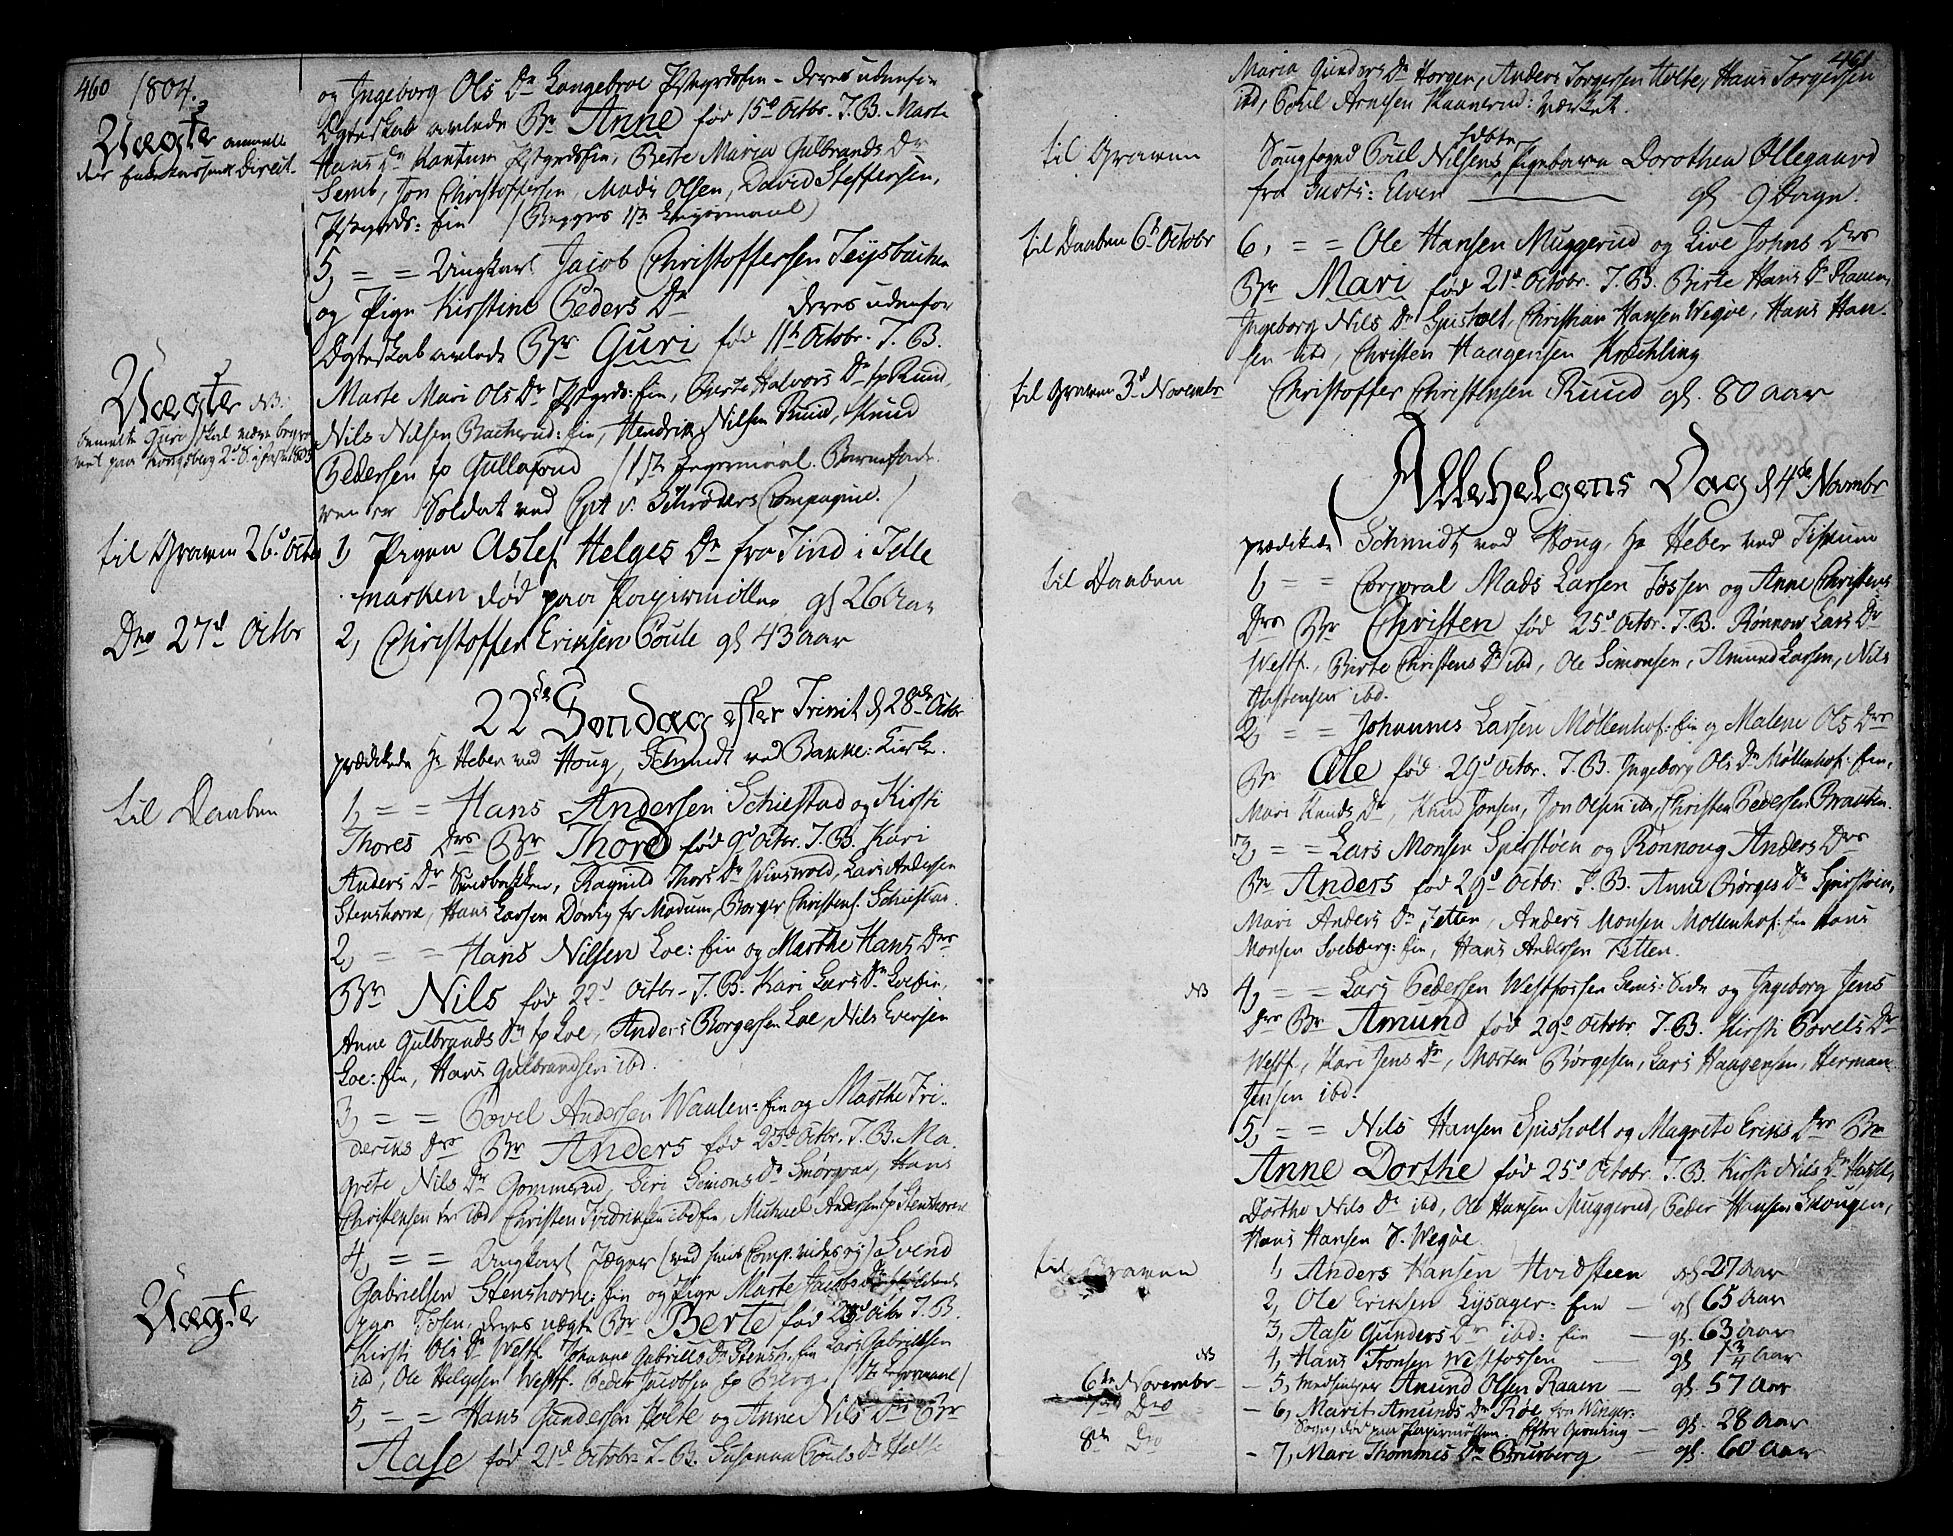 460 1804.
og Ingeborg Ols Dr Langebroe deres udenfor
Ægteskab avlede Br Anne fød 15d Octbr. T. B. Marte
Hans Dr Kantum Berte Maria Gulbrands Dr
Semb, Jon Christoffersen, Mads Olsen, David Steffersen,
Uægte
5, = = Ungkarl Jacob Christoffersen Teÿsbachen
og Pige Kirstine Peders Dr deres udenfor
Ægteskab avlede Br Guri fød 11te Octobr. T. B.
Marte Mari Ols Dr Berte Halvors Dr fr Ruud,
Nils Nilsen Bacherud: Eie, Hendrik Nilsen Ruud, Knud
Pedersen fr Gullaprud / 1ste Leyermaal. Barnefade-
ren er Soldat ved Cpt v. Schrøders Compagnie. /
Uægte NB:
bemelte Guri skal være begra-
vet paa Kongsberg
til Graven 26d Octbr
1, Pigen Aslef Helges Dr fra Tind i Telle
marken død paa Papiirmøllen gl 26 Aar
Dro 27d Octbr
2, Christoffer Eriksen Poule gl 43 aar
22de Søndag efter Trinit d 28de Octbr
prædikede Hr Heber ved Houg, Schmidt ved Bakke: Kirke.
til Daaben
1, = = Hans Andersen Schiestad og Kirsti
Thores Drs Br Thore fød 9d Octbr. T. B. Kari
Anders Dr Smedbachken, Ragnild Thors Dr Lars Andersen
Stenshorne, Hans Larsen fr Modum, Borger Christens. Schiestad.
2, = = Hans Nilsen Loe: Eie og Marthe Hans Drs
Br Nils fød 22d Octbr. T. B. Kari Lars Dr Loeeie,
Anne Gulbrands Dr fr Loe, Anders Borgersen Loe, Nils Eversen
Loe: Eie, Hans Gulbrandsen ibd.
3, = = Povel Andersen Waalen: Eie og Marthe Fri-
derichs Drs Br Anders fød 23d Octbr. T. B. Ma-
grete Nils Dr Gommerud, Siri Simons Dr Smørgrav, Hans
Christensen ibd Christen Fredriksen ibd Eie, Michael Andersen fr Stenshorne
Uægte
4, = = Ungkarl Jæger Svend
Gabrielsen Stenshorne: Eie og Pige Marte Jacobs Dr
paa Fosen, deres uægte Br Berte fød Octbr T. B.
Kirsti Ols Dr Westf. Johanne Gabriels Dr Stensh. Eie Lars Gabrielsen
ibd, Ole Helgesen Westf. Peder Jacobsen fr Berg / 1ste Leyermaal /
5, = = Hans Gundersen Holte og Anne Nils Drs Br
Aase fød 21d Octobr T. B. Susanna Pouls Dr Holte
461
Maria Gunders Dr Horgen, Anders Torgersen Holte, Hans Torgersen
ibd, Poul Arnesen Kaanerud: Værket.
til Graven
Sougfoged Poul Nilsens Pigebarn Dorothea Ollegaard
fra Elven gl 9 Dage.
til Daaben 6te Octobr
6, = = Ole Hansen Muggerud og Live Johns Drs
Br Mari fød 21d Octobr. T. B. Birte Hans Dr Raaen,
Ingeborg Nils Dr Spisholt, Christian Hansen Wegøe, Hans Han-
sen ibd, Christen Haagensen Krechling
til Graven 3d Novembr
Christoffer Christensen Ruud gl. 80 aar
Allehelgens Dag d 4de Novembr
prædikede Schmidt ved Houg, Hr Heber ved Fiskum
til Daaben
1, = = Corporal Mads Larsen Fossen og Anne Christens
Drs Br Christen fød 25d Octbr. T. B. Rønnow Lars Dr
Westf., Berte Christens Dr ibd, Ole Simonsen, Amund Larsen, Nils
Justensen ibd.
2, = = Johannes Larsen Møllenhof: Eie og Malene Ols Drs
Br Ole fød 29d Octbr. T. B. Ingeborg Ols Dr Møllenhof: Eie,
Mari Knuds Dr, Knud Jonsen, Jon Olsen ibd, Christen Pedersen Braaten.
3, = = Lars Monsen Spirstøen og Rønnoug Anders Drs
Br Anders fød 29d Octbr. T. B. Anne Børges Dr Spirstøen,
Mari Anders Dr Tetten, Anders Monsen Møllenhof: Eie Hans
Monsen Solberg: Eie, Hans Andersen Tetten.
NB
4, = = Lars Pedersen Westfossen Sems: Side og Ingeborg Jens
Drs Br Amund fød 29d Octobr. T. B. Kirsti Povels Dr
Westf., Kari Jens Dr, Morten Børgesen, Lars Haagensen, Herman
Jensen ibd.
5, = = Nils Hansen Spisholt og Magrete Eriks Drs Br
Anne Dorthe fød 25d Octobr. T. B. Kirsti Nils Dr
Dorthe Nils Dr ibd, Ole Hansen Muggerud, Peder Hansen Skougen,
Hans Hansen S. Wegøe.
til Graven
1, Anders Hansen Hvidsteen gl 27 aar
2, Ole Eriksen Lysager: Eie — gl 65 aar
3, Aase Gunders Dr ibd: Eie — gl. 63 aar
NB
4, Hans Tronsen Westfossen — gl 1 3/4 aar
6te Novembr — 5, Medhielper Amund Olsen Raaen — gl. 57 aar
7de Dro — 6, Marit Amunds Dr Roe fra Winger:
Sogn, død paa Papiirmøllen. gl. 28 aar
8de Dro — 7, Mari Thommes Dr Brusberg — gl. 60 aar